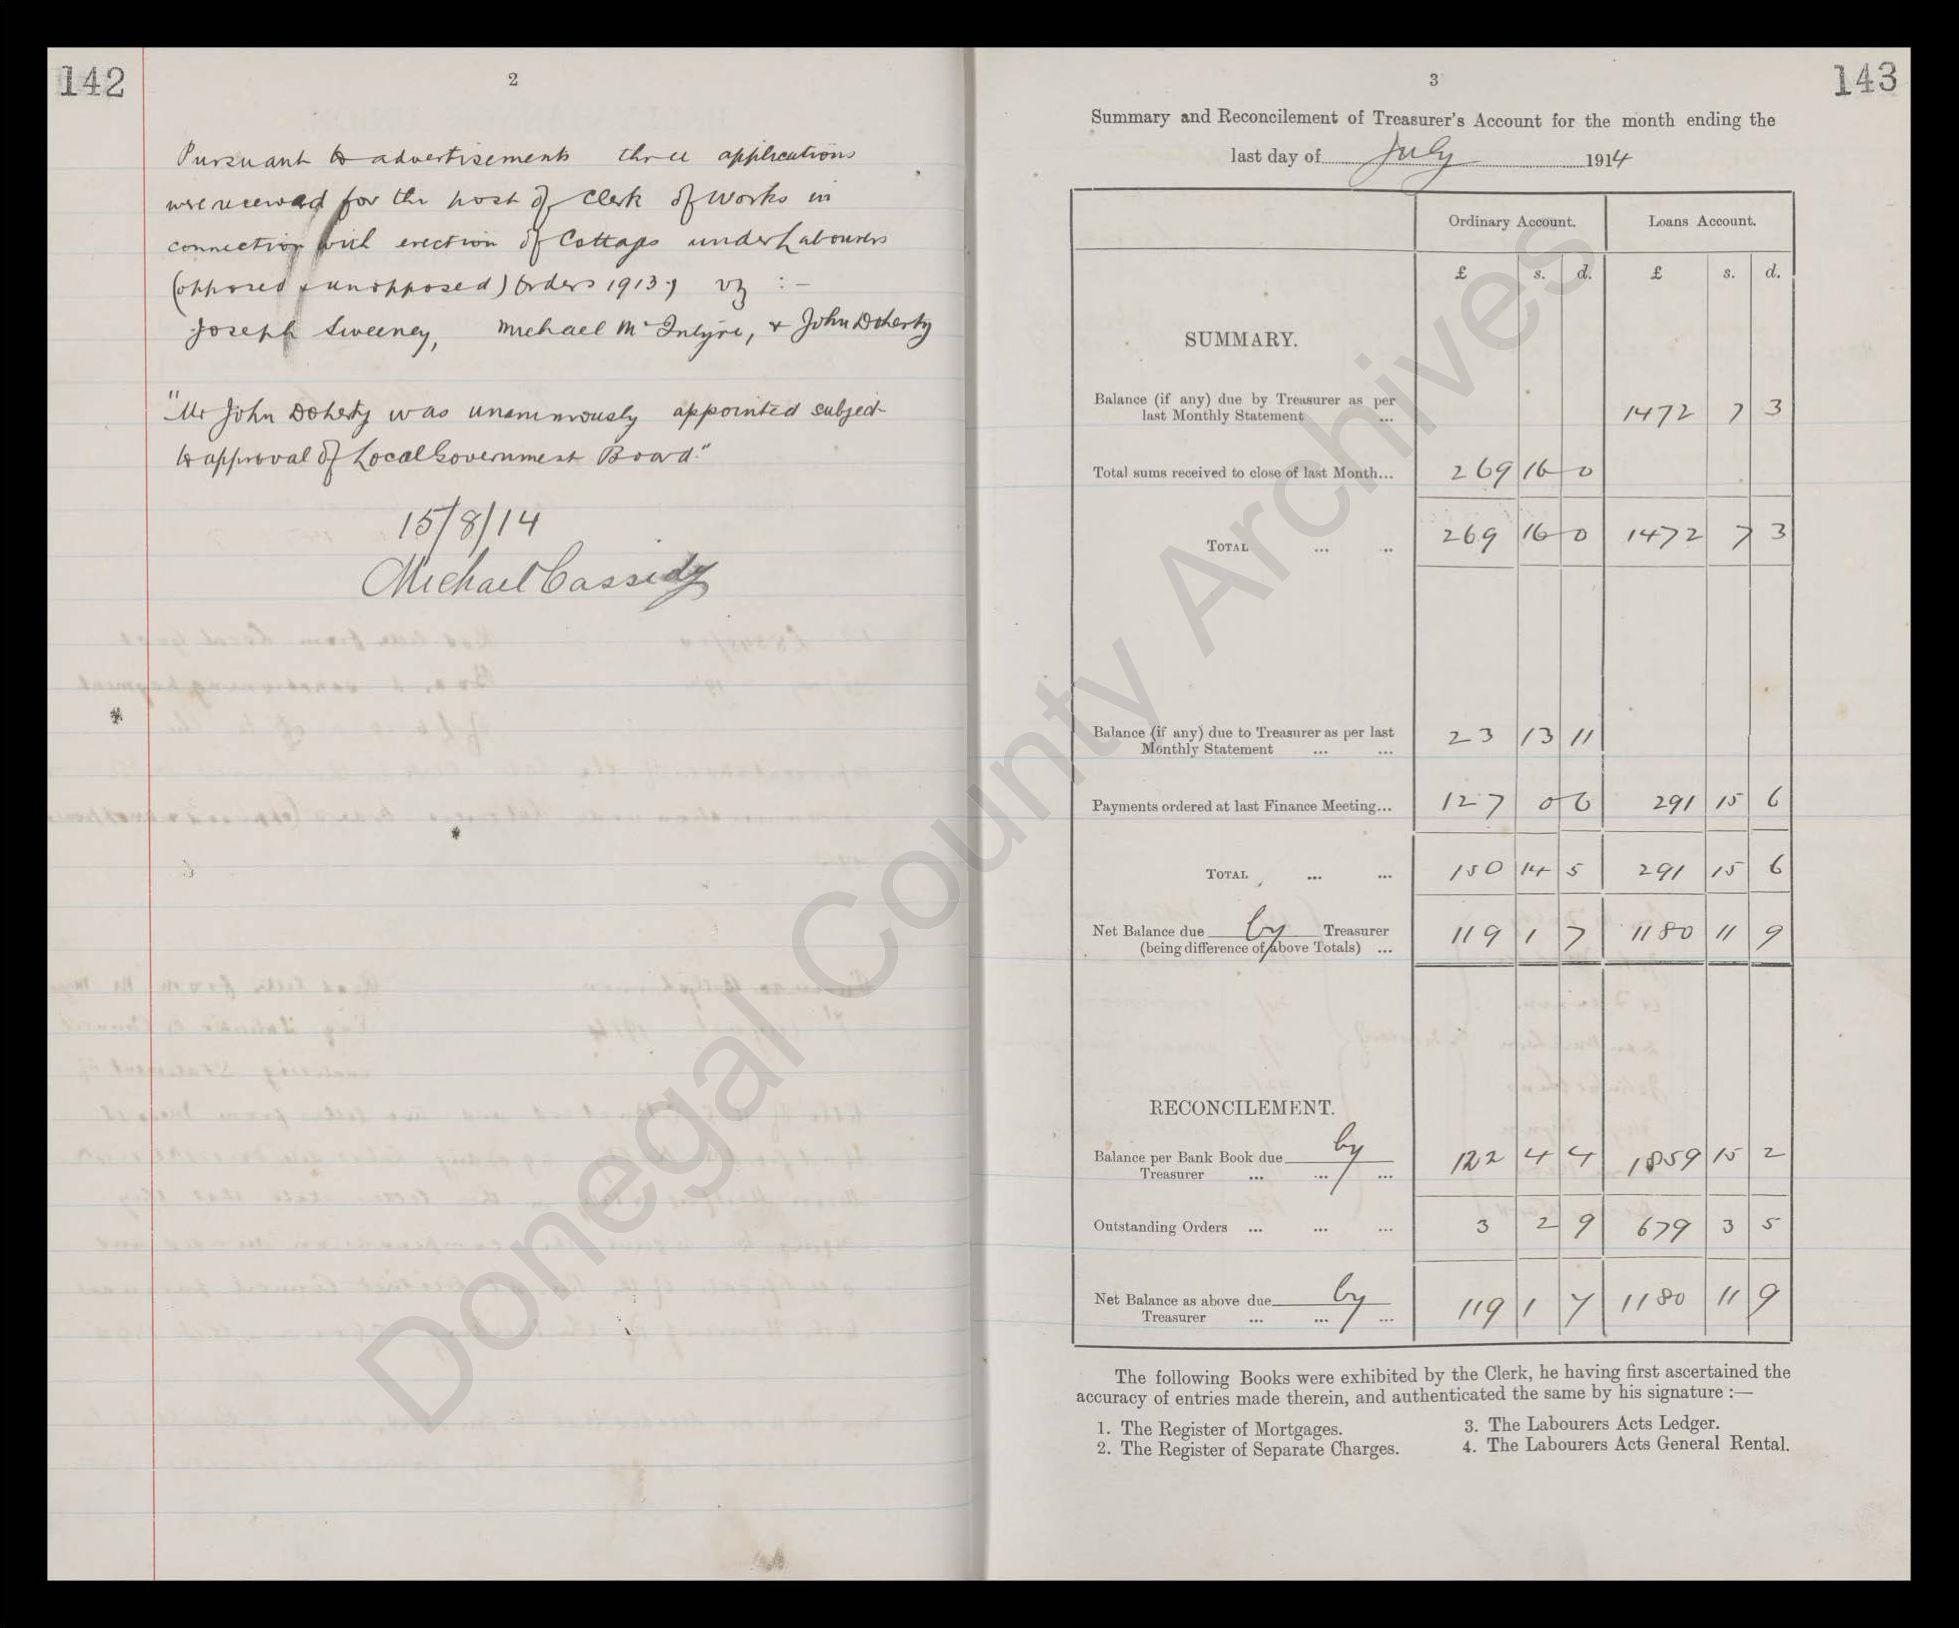 142
2
Pursuant to advertisements three applications
were received for the post of Clerk of Works in
connection with erection of Cottages under Labourers
(opposed & unopposed) Orders 1913, viz :-
Joseph Sweeney, Michael McIntyre, & John Doherty
"Mr John Doherty was unanimously appointed subject
to approval of Local Government Board."
15/8/14
Michael Cassidy
143
3
Summary and Reconcilement of Treasurer's Account for the month ending the
last day of July 1914
Ordinary Account. Loans Account.
£ s. d. £ s. d.
SUMMARY.
Balance (if any) due by Treasurer as per
last Monthly Statement ... 1472 7 3
Total sums received to close of last Month... 269 16 0
TOTAL ... ... 269 16 0 1472 7 3
Balance (if any) due to Treasurer as per last
Monthly Statement ... ... 23 13 11
Payments ordered at last Finance Meeting... 127 0 6 291 15 6
TOTAL ... ... 150 14 5 291 15 6
Net Balance due by Treasurer
(being difference of above Totals) ... 119 1 7 1180 11 9
RECONCILEMENT.
Balance per Bank Book due by
Treasurer ... ... ... 122 4 4 1859 15 2
Outstanding Orders ... ... ... 3 2 9 679 3 5
Net Balance as above due by
Treasurer ... ... ... 119 1 7 1180 11 9
The following Books were exhibited by the Clerk, he having first ascertained the
accuracy of entries made therein, and authenticated the same by his signature :—
1. The Register of Mortgages. 3. The Labourers Acts Ledger.
2. The Register of Separate Charges. 4. The Labourers Acts General Rental.
Donegal County Archives